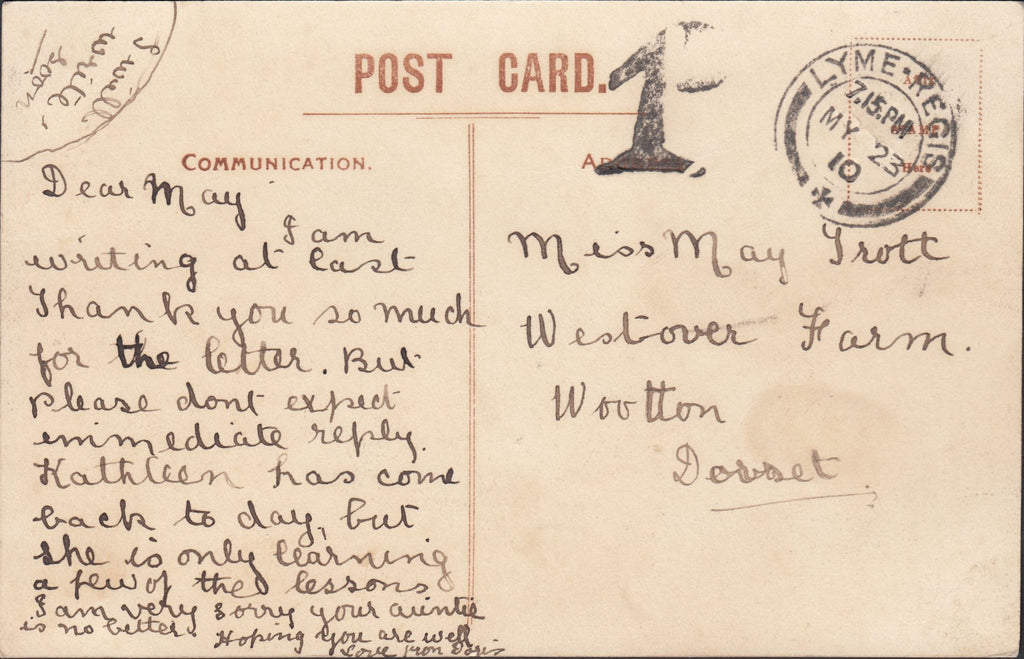 I will
write
soon.
POST CARD.
1D
LYME·REGIS
7.15.PM
MY 23
10
COMMUNICATION.
Dear May
I am
writing at last
Thank you so much
for the letter. But
please dont expect
immediate reply.
Kathleen has come
back to day, but
she is only learning
a few of the lessons
I am very sorry your auntie
is no better. Hoping you are well
Love from Doris
Miss May Trott
Westover Farm.
Wootton
Dorset